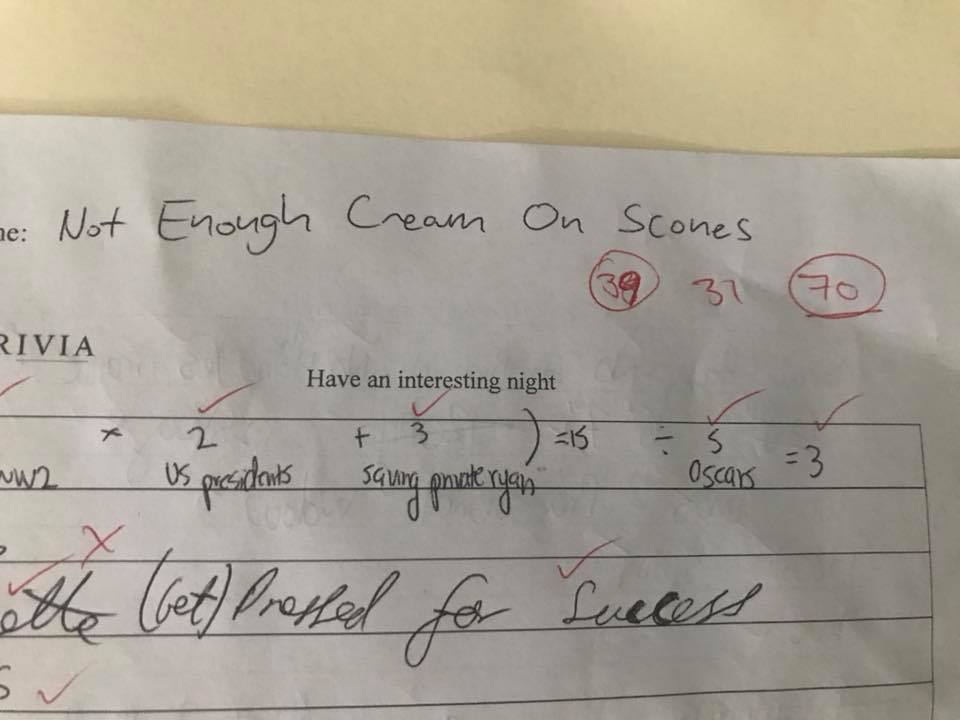 ne: Not Enough Cream On Scones
39 31 70
RIVIA
Have an interesting night
× 2 + 3 ) =15 ÷ 5 =3
WW2 US presidents saving private ryan Oscars
(Get) Dressed for Success
S